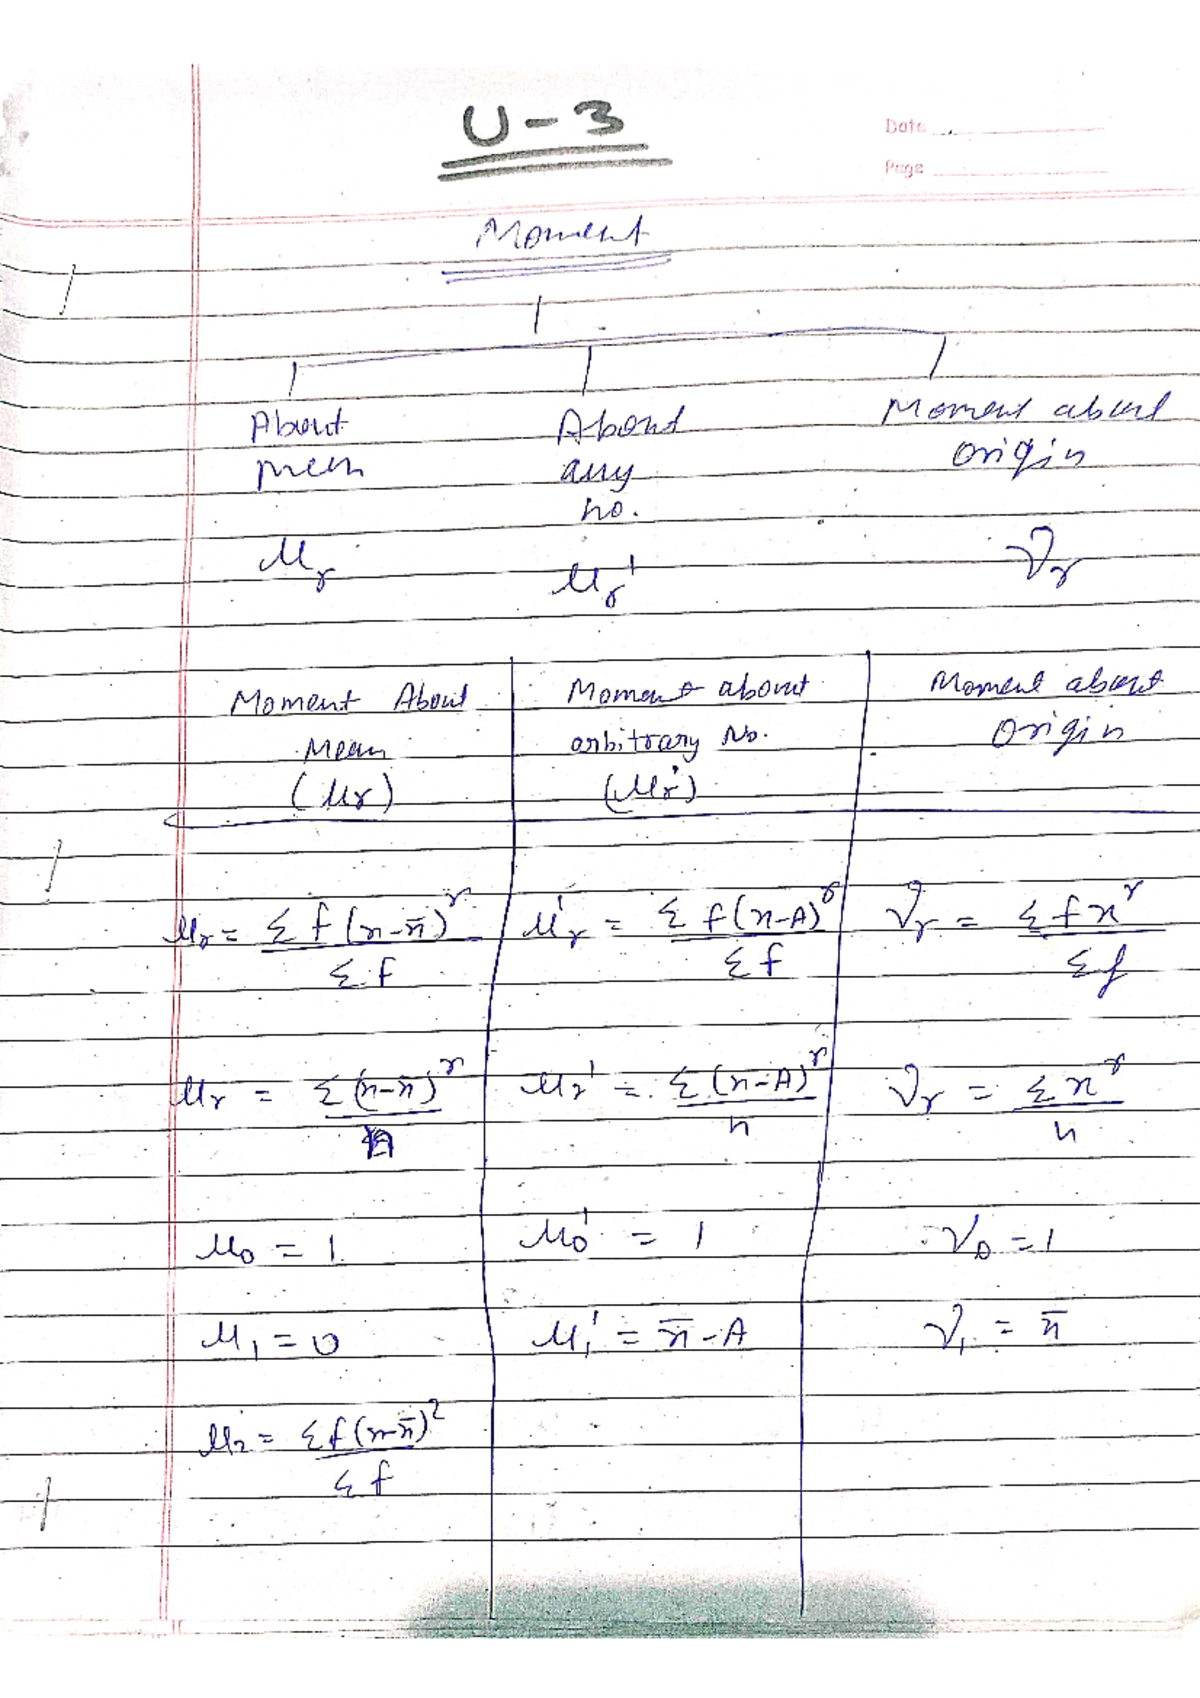 U-3
Date
Page
Moment
About mean
About any no.
Moment about origin
μr
μr'
νr
Moment About Mean (μr)
Moment about arbitrary No. (μr')
Moment about origin
μr = Σf(x-x̄)^r / Σf
μ'r = Σf(x-A)^r / Σf
νr = Σfx^r / Σf
μr = Σ(x-x̄)^r / n
μr' = Σ(x-A)^r / n
νr = Σx^r / n
μ0 = 1
μ0' = 1
ν0 = 1
μ1 = 0
μ1' = x̄-A
ν1 = x̄
μ2 = Σf(x-x̄)^2 / Σf